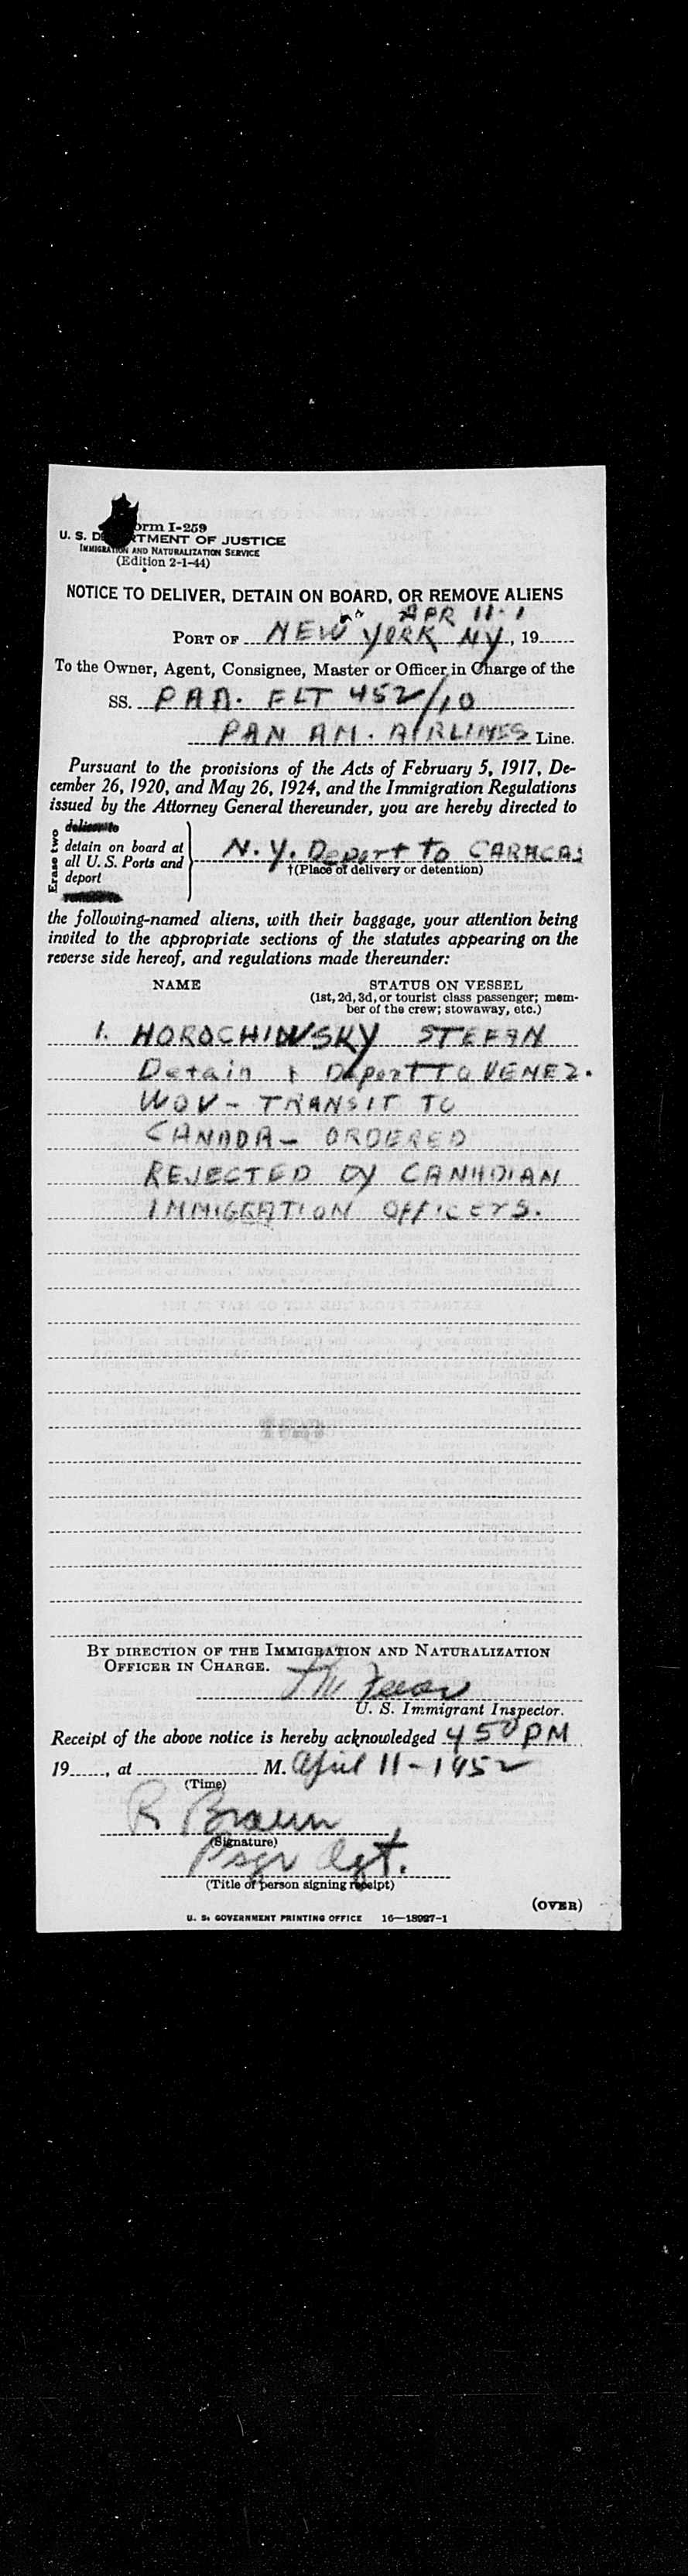 Form I-259
U. S. DEPARTMENT OF JUSTICE
IMMIGRATION AND NATURALIZATION SERVICE
(Edition 2-1-44)
NOTICE TO DELIVER, DETAIN ON BOARD, OR REMOVE ALIENS
APR 11
PORT OF NEW YORK NY, 19
To the Owner, Agent, Consignee, Master or Officer in Charge of the
SS. PAA. FLT 452/10
PAN AM. AIRLINES Line.
Pursuant to the provisions of the Acts of February 5, 1917, De-
cember 26, 1920, and May 26, 1924, and the Immigration Regulations
issued by the Attorney General thereunder, you are hereby directed to
Erase two
detain on board at
all U. S. Ports and
deport
N. Y. Deport to CARACAS
†(Place of delivery or detention)
the following-named aliens, with their baggage, your attention being
invited to the appropriate sections of the statutes appearing on the
reverse side hereof, and regulations made thereunder:
NAME STATUS ON VESSEL
(1st, 2d, 3d, or tourist class passenger; mem-
ber of the crew; stowaway, etc.)
1. HOROCHIWSKY STEFAN
Detain & Deport TO VENEZ.
WOV - TRANSIT TO
CANADA - ORDERED
REJECTED BY CANADIAN
IMMIGRATION OFFICERS.
BY DIRECTION OF THE IMMIGRATION AND NATURALIZATION
OFFICER IN CHARGE.
U. S. Immigrant Inspector.
Receipt of the above notice is hereby acknowledged 4 50 PM
19, at M. April 11 - 1952
(Time)
R Braun
(Signature)
Psgr Agt.
(Title of person signing receipt)
(OVER)
U. S. GOVERNMENT PRINTING OFFICE 16—18097-1